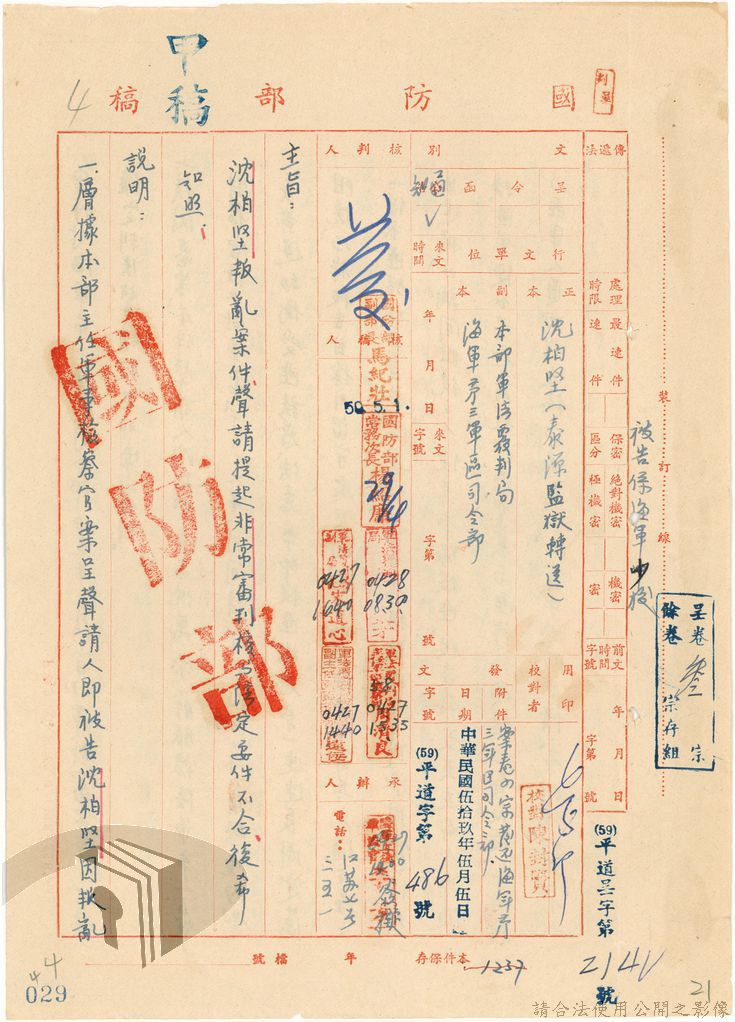 國防部稿
甲稿
4
判呈
裝訂線
傳遞法
處理時限 最速件 速件
保密區分 絕對機密 極機密 機密 密
前文 時間 字號 年 月 日 字第 號
被告係海軍少校
呈卷叁宗
餘卷 宗存組
文別
呈 令 函
通知
行文單位
正本
副本
沈柏堅(泰源監獄轉送)
本部軍法覆判局
海軍第三軍區司令部
來文時間 年 月 日
來文字號 字第 號
用印
校對者
校對陳
附件
發文日期
字號
中華民國伍拾玖年伍月伍日
(59)平道字第486號
(59)平道呈字第2141號
核判人
核人
國防部副部長馬紀壯
59.5.1.
國防部常務次長楊
29/4
0428
0830
0427
1640
0427
1535
0427
1440
承辦人
電話:
三五一
主旨:
沈柏堅叛亂案件聲請提起非常審判核與法定要件不合復希
知照。
說明:
一、層據本部主任軍事檢察官案呈聲請人即被告沈柏堅因叛亂
國防部
本件保存 年
檔號
1257
44
029
21
請合法使用公開之影像